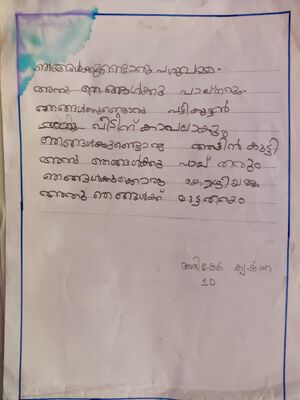 ഞങ്ങൾക്കുണ്ടൊരു പശുവമ്മ.
അതു ഞങ്ങൾക്കു പാല്തരും
ഞങ്ങൾക്കുണ്ടൊരു പട്ടിക്കുട്ടൻ
വീടിന് കാവലാകും
ഞങ്ങൾക്കുണ്ടൊരു ആട്ടിൻ കുട്ടി
അതു ഞങ്ങൾക്കു പാല് തരും
ഞങ്ങൾക്കുണ്ടൊരു കോഴിയമ്മ
അതു ഞങ്ങൾക്ക് മുട്ടതരും
അഭിഷേക് കൃഷ്ണ
1D